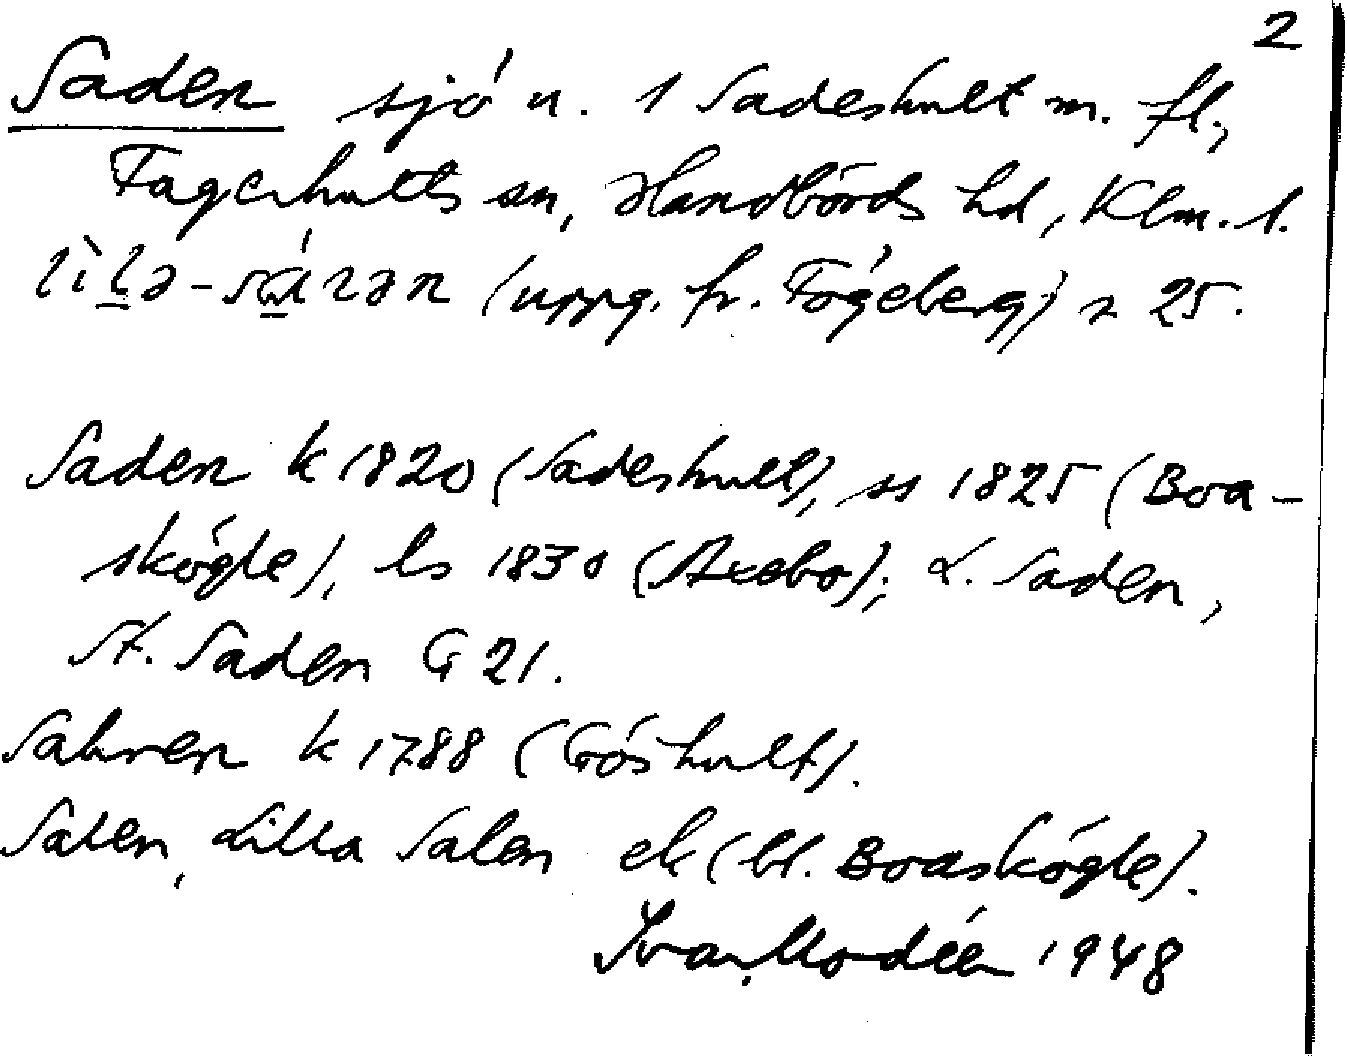 2
Saden sjö n. 1 Sadeshult m. fl.,
Fagerhults sn, Handbörds hd, Klm. l.
(uppg. fr. Fågeberg) 25.
Saden k 1820 (Sadeshult), ss 1825 (Boa-
skögle), ls 1830 (Axebo); L. Saden,
St. Saden G 21.
Sahren k 1788 (Göshult).
Salen, Lilla Salen ek (bl. Boaskögle).
Ivar Modéer 1948